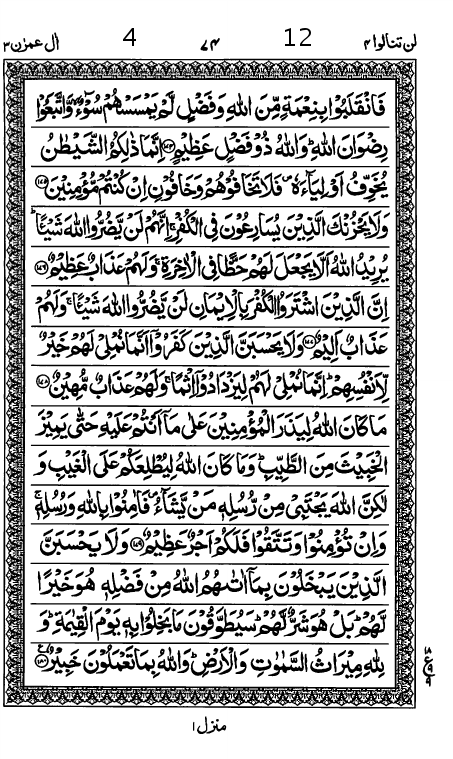 لن تنالوا ۴ 12 ۷۴ 4 اٰل عمرٰن ۳
فَانْقَلَبُوْا بِنِعْمَةٍ مِّنَ اللّٰهِ وَفَضْلٍ لَّمْ يَمْسَسْهُمْ سُوْٓءٌ ۙ وَّاتَّبَعُوْا
رِضْوَانَ اللّٰهِ ؕ وَاللّٰهُ ذُوْ فَضْلٍ عَظِيْمٍ ﴿۱۷۴﴾ اِنَّمَا ذٰلِكُمُ الشَّيْطٰنُ
يُخَوِّفُ اَوْلِيَآءَهٗ ۪ فَلَا تَخَافُوْهُمْ وَخَافُوْنِ اِنْ كُنْتُمْ مُّؤْمِنِيْنَ ﴿۱۷۵﴾
وَلَا يَحْزُنْكَ الَّذِيْنَ يُسَارِعُوْنَ فِى الْكُفْرِ ۚ اِنَّهُمْ لَنْ يَّضُرُّوا اللّٰهَ شَيْـًٔا ؕ
يُرِيْدُ اللّٰهُ اَلَّا يَجْعَلَ لَهُمْ حَظًّا فِى الْاٰخِرَةِ ۚ وَلَهُمْ عَذَابٌ عَظِيْمٌ ﴿۱۷۶﴾
اِنَّ الَّذِيْنَ اشْتَرَوُا الْكُفْرَ بِالْاِيْمَانِ لَنْ يَّضُرُّوا اللّٰهَ شَيْـًٔا ۚ وَلَهُمْ
عَذَابٌ اَلِيْمٌ ﴿۱۷۷﴾ وَلَا يَحْسَبَنَّ الَّذِيْنَ كَفَرُوْۤا اَنَّمَا نُمْلِىْ لَهُمْ خَيْرٌ
لِّاَنْفُسِهِمْ ؕ اِنَّمَا نُمْلِىْ لَهُمْ لِيَزْدَادُوْۤا اِثْمًا ۚ وَلَهُمْ عَذَابٌ مُّهِيْنٌ ﴿۱۷۸﴾
مَا كَانَ اللّٰهُ لِيَذَرَ الْمُؤْمِنِيْنَ عَلٰى مَاۤ اَنْتُمْ عَلَيْهِ حَتّٰى يَمِيْزَ
الْخَبِيْثَ مِنَ الطَّيِّبِ ؕ وَمَا كَانَ اللّٰهُ لِيُطْلِعَكُمْ عَلَى الْغَيْبِ وَ
لٰكِنَّ اللّٰهَ يَجْتَبِىْ مِنْ رُّسُلِهٖ مَنْ يَّشَآءُ ۪ فَاٰمِنُوْا بِاللّٰهِ وَرُسُلِهٖ ۚ
وَاِنْ تُؤْمِنُوْا وَتَتَّقُوْا فَلَكُمْ اَجْرٌ عَظِيْمٌ ﴿۱۷۹﴾ وَلَا يَحْسَبَنَّ
الَّذِيْنَ يَبْخَلُوْنَ بِمَاۤ اٰتٰٮهُمُ اللّٰهُ مِنْ فَضْلِهٖ هُوَ خَيْرًا
لَّهُمْ ؕ بَلْ هُوَ شَرٌّ لَّهُمْ ؕ سَيُطَوَّقُوْنَ مَا بَخِلُوْا بِهٖ يَوْمَ الْقِيٰمَةِ ؕ وَ
لِلّٰهِ مِيْرَاثُ السَّمٰوٰتِ وَالْاَرْضِ ؕ وَاللّٰهُ بِمَا تَعْمَلُوْنَ خَبِيْرٌ ﴿۱۸۰﴾
منزل ۱